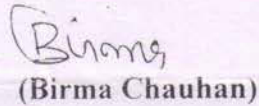 Birma
(Birma Chauhan)